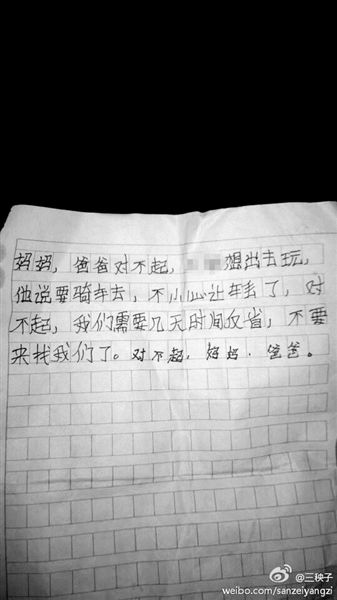 妈妈，爸爸对不起，想出去玩，
他说要骑车去，不小心让车丢了，对
不起，我们需要几天时间反省，不要
来找我们了。对不起，妈妈．爸爸。
@三秧子
weibo.com/sanzeiyangzi